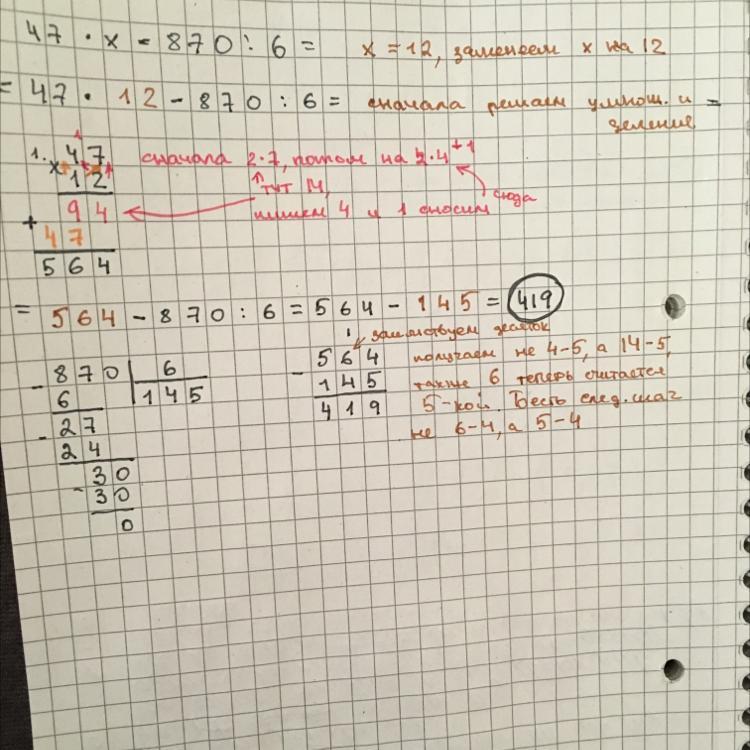 47 · x - 870 : 6 = x = 12, заменяем x на 12
= 47 · 12 - 870 : 6 = сначала решаем умнож. и =
деление
1
1. 47 сначала 2·7, потом на 2·4+1
x 12 тут 14, сюда
+ 94 пишем 4 и 1 сносим
47
564
= 564 - 870 : 6 = 564 - 145 = 419
заимствуем десяток
- 870 6 - 564 получаем не 4-5, а 14-5,
6 145 145 также 6 теперь считается
- 27 419 5-кой. след. шаг
24 не 6-4, а 5-4
30
- 30
0